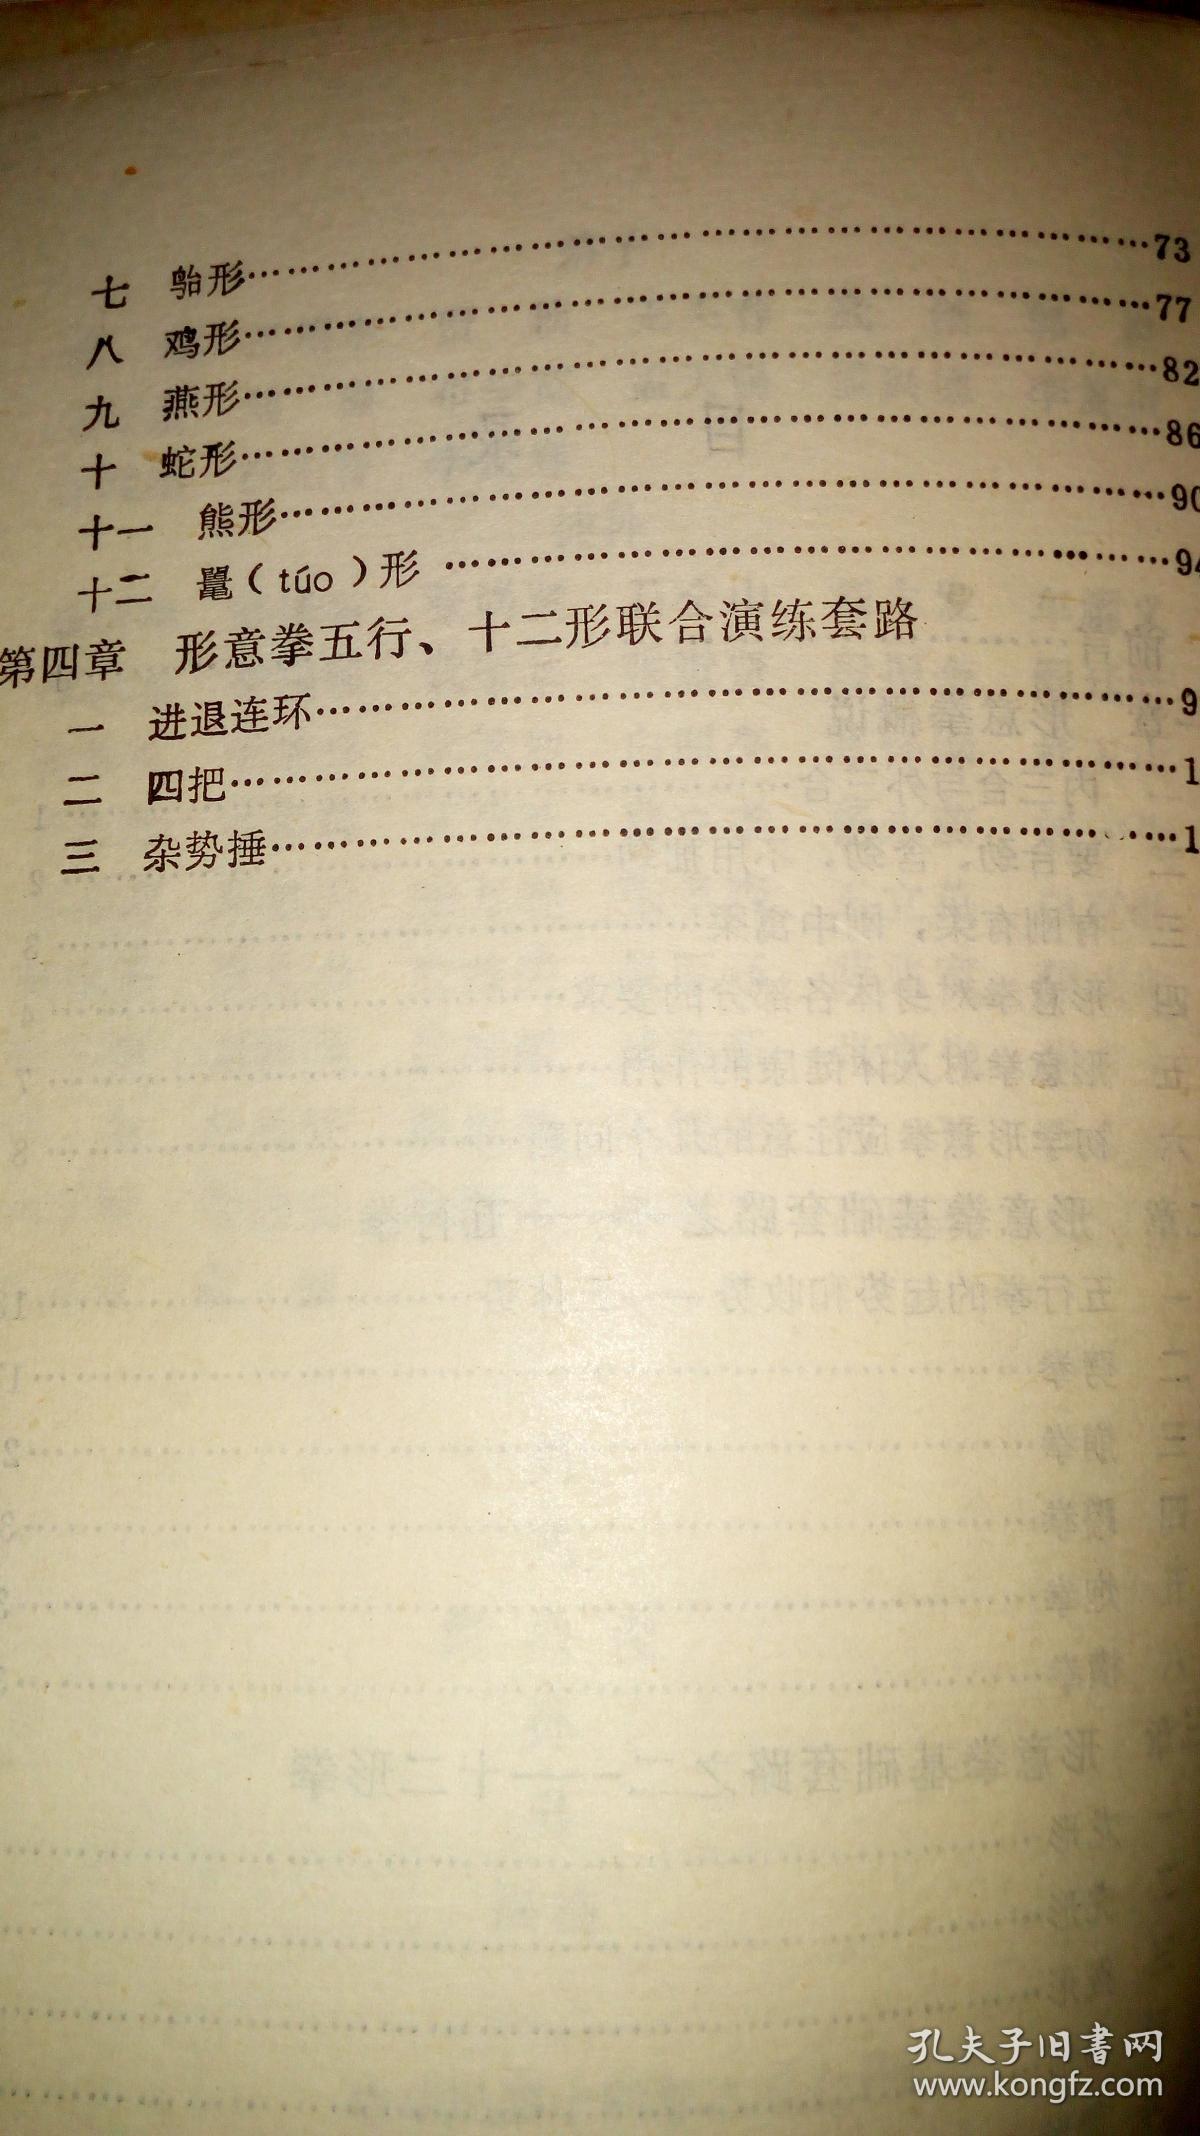 七 鸵形……73
八 鸡形……77
九 燕形……82
十 蛇形……86
十一 熊形……90
十二 鼍（túo）形……94
第四章 形意拳五行、十二形联合演练套路
一 进退连环……9
二 四把……1
三 杂势捶……1
孔夫子旧书网
www.kongfz.com